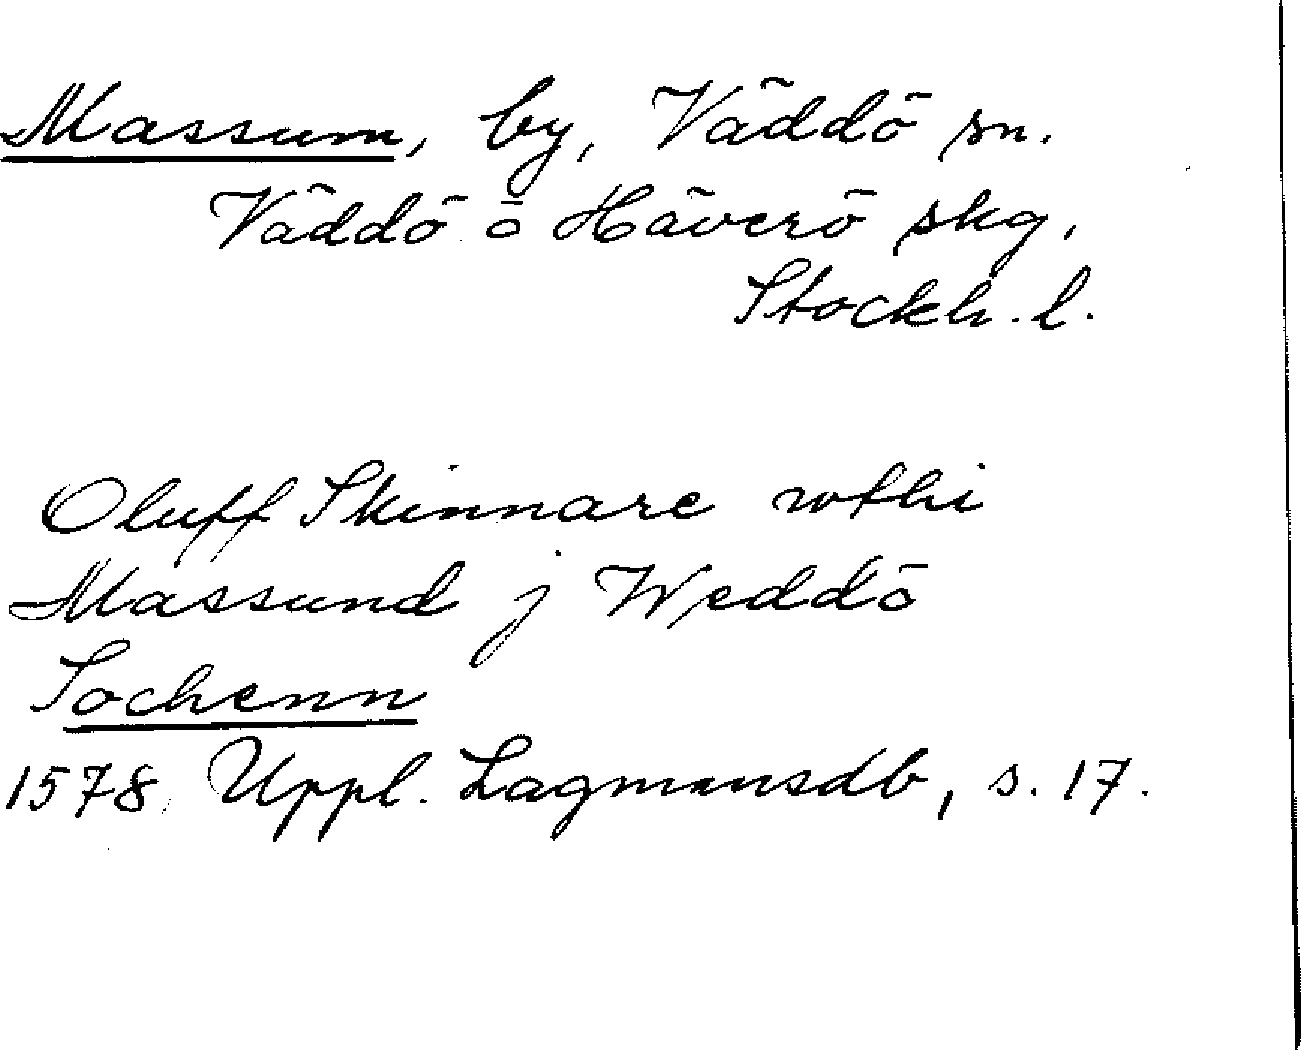 Massum, by, Väddö sn.
Väddö o Häverö skg,
Stockh. l.
Oluff Skinnare wthi
Massund j Weddö
Sochenn
1578. Uppl. Lagmansdb, s. 17.